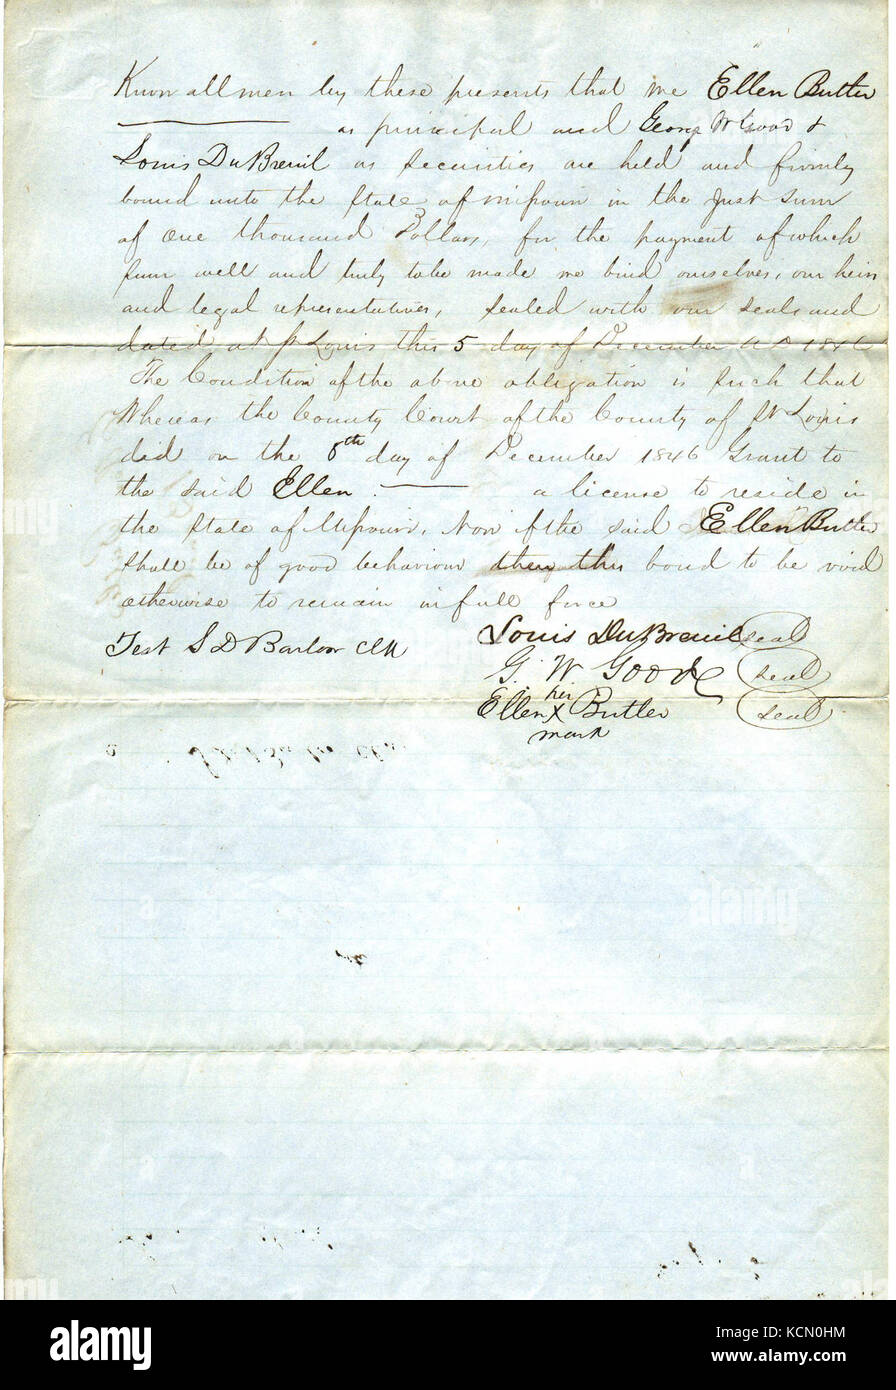 Know all men by these presents that we Ellen Butler
as principal and George W Good &
Louis DuBreuil as Securities are held and firmly
bound unto the State of Missouri in the Just Sum
of One thousand Dollars, for the payment of which
Sum well and truly to be made we bind ourselves, our heirs
and legal representatives, Sealed with our seals and
dated at St Louis this 5 day of December A D 1846
The Condition of the above obligation is such that
Whereas the County Court of the County of St Louis
did on the day of December 1846 Grant to
the said Ellen a license to reside in
the State of Missouri, Now if the said Ellen Butler
shall be of good behaviour then this bond to be void
otherwise to remain in full force
Test S D Barlow Clk
Louis DuBreuil seal
G. W Goode seal
her
Ellen X Butler seal
mark
alamy
Image ID: KCN0HM
www.alamy.com